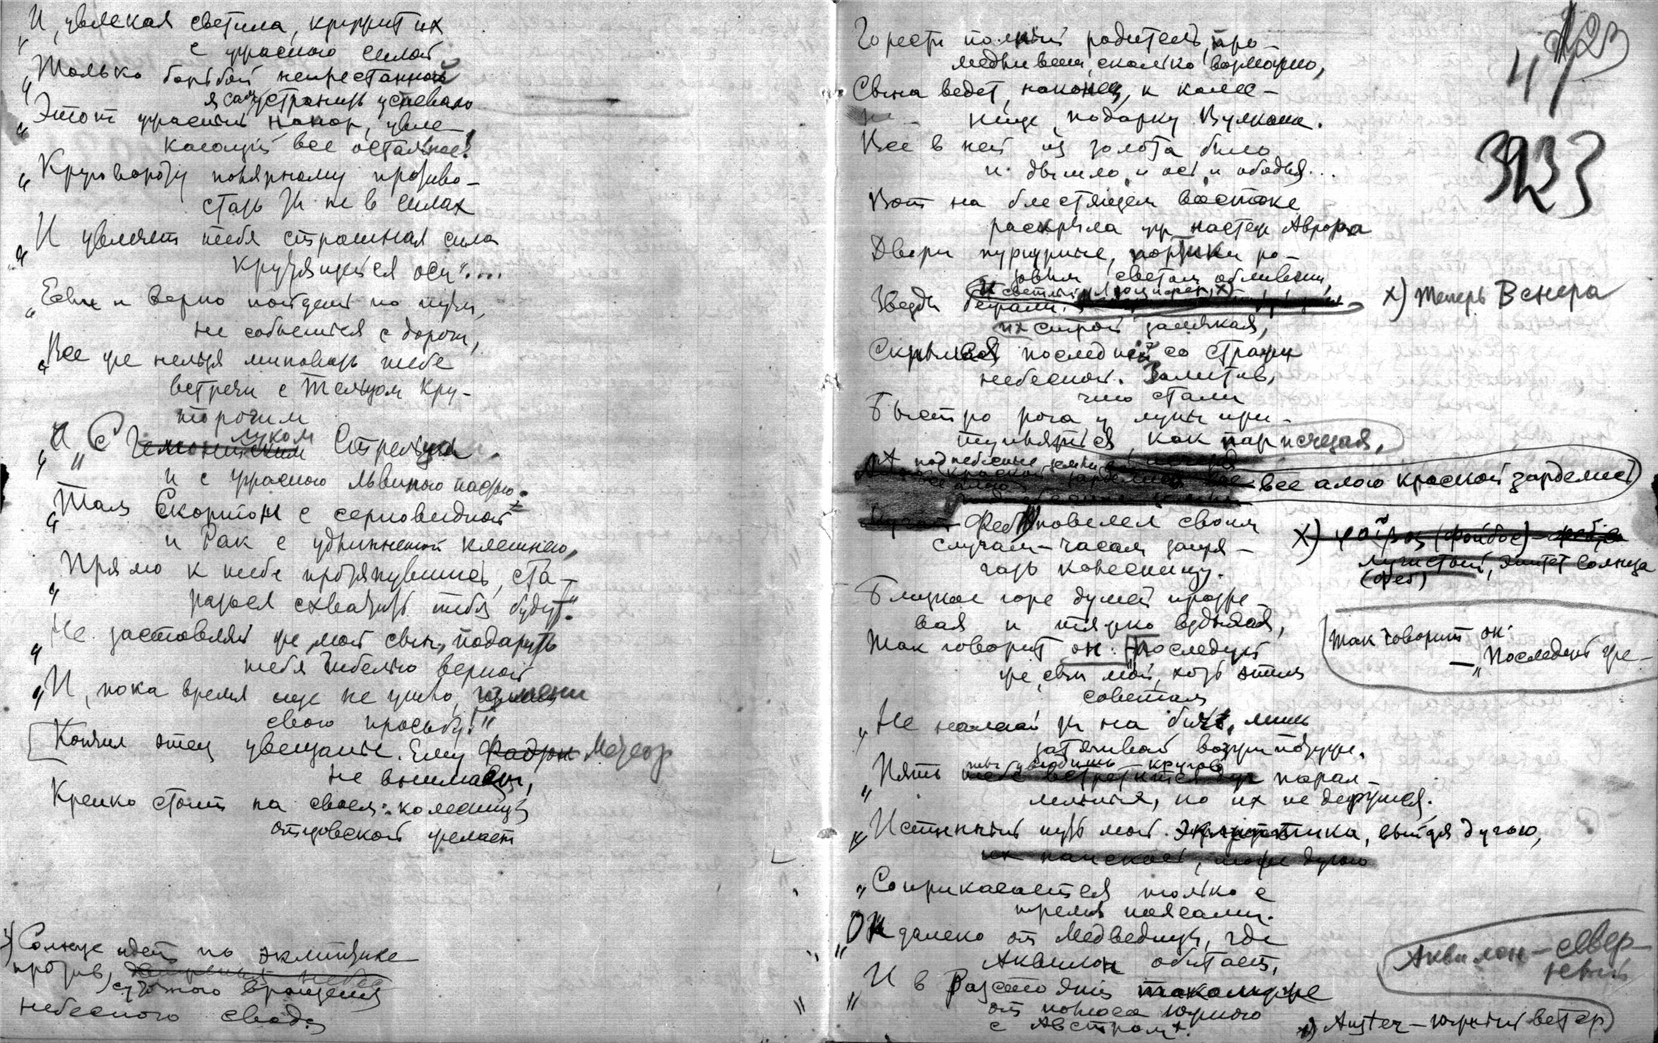 „И, увлекая светила, кружит их
с ужасною силой
„Только борьбой непрестанной
я сам устранить успеваю
„Этот ужасный напор, увле-
кающий все остальное!
„Круговороту полярному противо-
стать ты не в силах
„И увлечет тебя страшная сила
кружащейся оси“....
„Если и верно пойдешь по пути,
не собьешься с дороги,
„Все же нельзя миновать тебе
встречи с Тельцом Кру-
торогим
„И с луком Стрельца,
и с ужасною львиного пастью
„Там Скорпион с серповидной
и Рак с удлиненной клешнею,
„Прямо к тебе протянувшись, ста-
схватить тебя будут.“
„Не заставляй же, мой сын, подарить
тебя гибелью верной
„И, пока время еще не ушло, измени
свою просьбу!“
Кончил отец увещанье. Ему Фаэтон
не внимает,
Крепко стоит на своем: колесницу
отцовской желает
x) Солнце идет по эклиптике
против
суточного вращения
небесного свода
Горести полный родитель, про-
медливши, сколько возможно,
Сына ведет, наконец, к колес-
нице, подарку Вулкана.
Все в ней из золота было
и дышло, и оси, и ободья...
Вот на блестящем востоке
раскрыла уж настежь Аврора
Двери пурпурные, портики ро-
зовым светом обливши,
Звезды бежали. И светлый Люцифер, x)
их строй замыкая,
Скрылся последний со стражи
небесной. Заметив,
что стали
Быстро рога у луны при-
тупляться, как
все алою краской зарделись
Феб повелел своим
слугам-часам запря-
гать колесницу.
Близкое горе душей прозре
вая и тяжко вздыхая,
Так говорит он: „Последуй
же, сын мой, хоть этим
советам
„Не налегай ты на бич, лишь
затягивай вожжи потуже.
„Пять ты увидишь кругов парал-
лельных, но их не держися.
„Истинный путь мой эклиптика, выйдя дугою,
„Соприкасается только с
тремя поясами.
„Он далеко от Медведицы, где
Аквилон обитает,
„И в расстояньи таком же
от полюса южного
с Австром x.
4
23
3233
x) теперь Венера
x) (Фойбос)
лучистый, эпитет солнца
(Феб)
Так говорит он:
— „Последуй же-
Аквилон — север-
ный
x) Auster — южный ветер